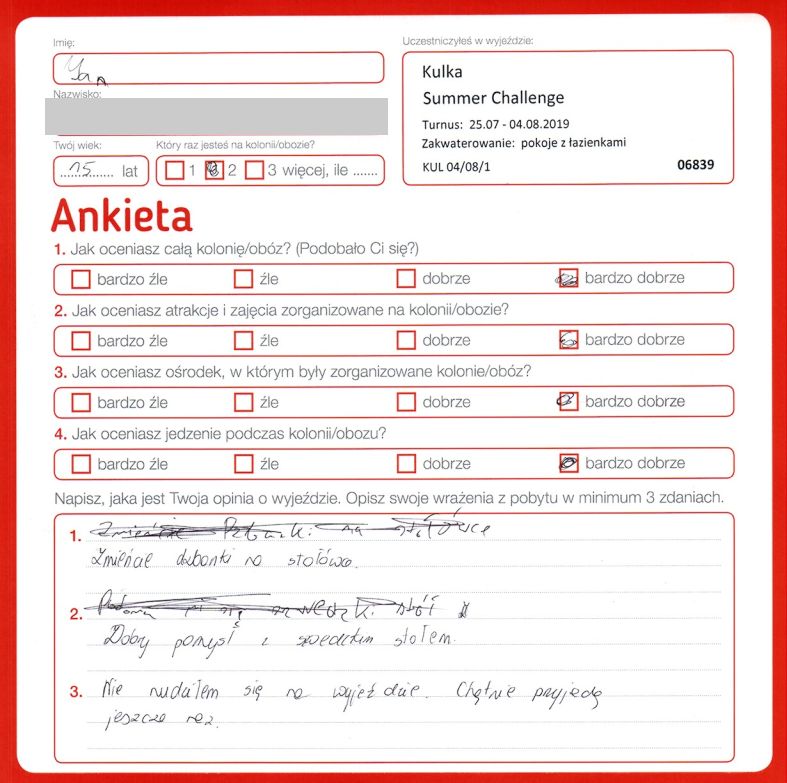 Imię:
Uczestniczyłeś w wyjeździe:
Jan
Kulka
Summer Challenge
Nazwisko:
Turnus: 25.07 - 04.08.2019
Zakwaterowanie: pokoje z łazienkami
KUL 04/08/1 06839
Twój wiek: Który raz jesteś na kolonii/obozie?
15 lat 1 2 3 więcej, ile .......
Ankieta
1. Jak oceniasz całą kolonię/obóz? (Podobało Ci się?)
bardzo źle źle dobrze bardzo dobrze
2. Jak oceniasz atrakcje i zajęcia zorganizowane na kolonii/obozie?
bardzo źle źle dobrze bardzo dobrze
3. Jak oceniasz ośrodek, w którym były zorganizowane kolonie/obóz?
bardzo źle źle dobrze bardzo dobrze
4. Jak oceniasz jedzenie podczas kolonii/obozu?
bardzo źle źle dobrze bardzo dobrze
Napisz, jaka jest Twoja opinia o wyjeździe. Opisz swoje wrażenia z pobytu w minimum 3 zdaniach.
1. na stołówce
Zmieńcie dzbanki na
2. stół
Dobry pomysł z szwedzkim stołem.
3. Nie nudziłem się na wyjeździe. Chętnie przyjadę
jeszcze raz.